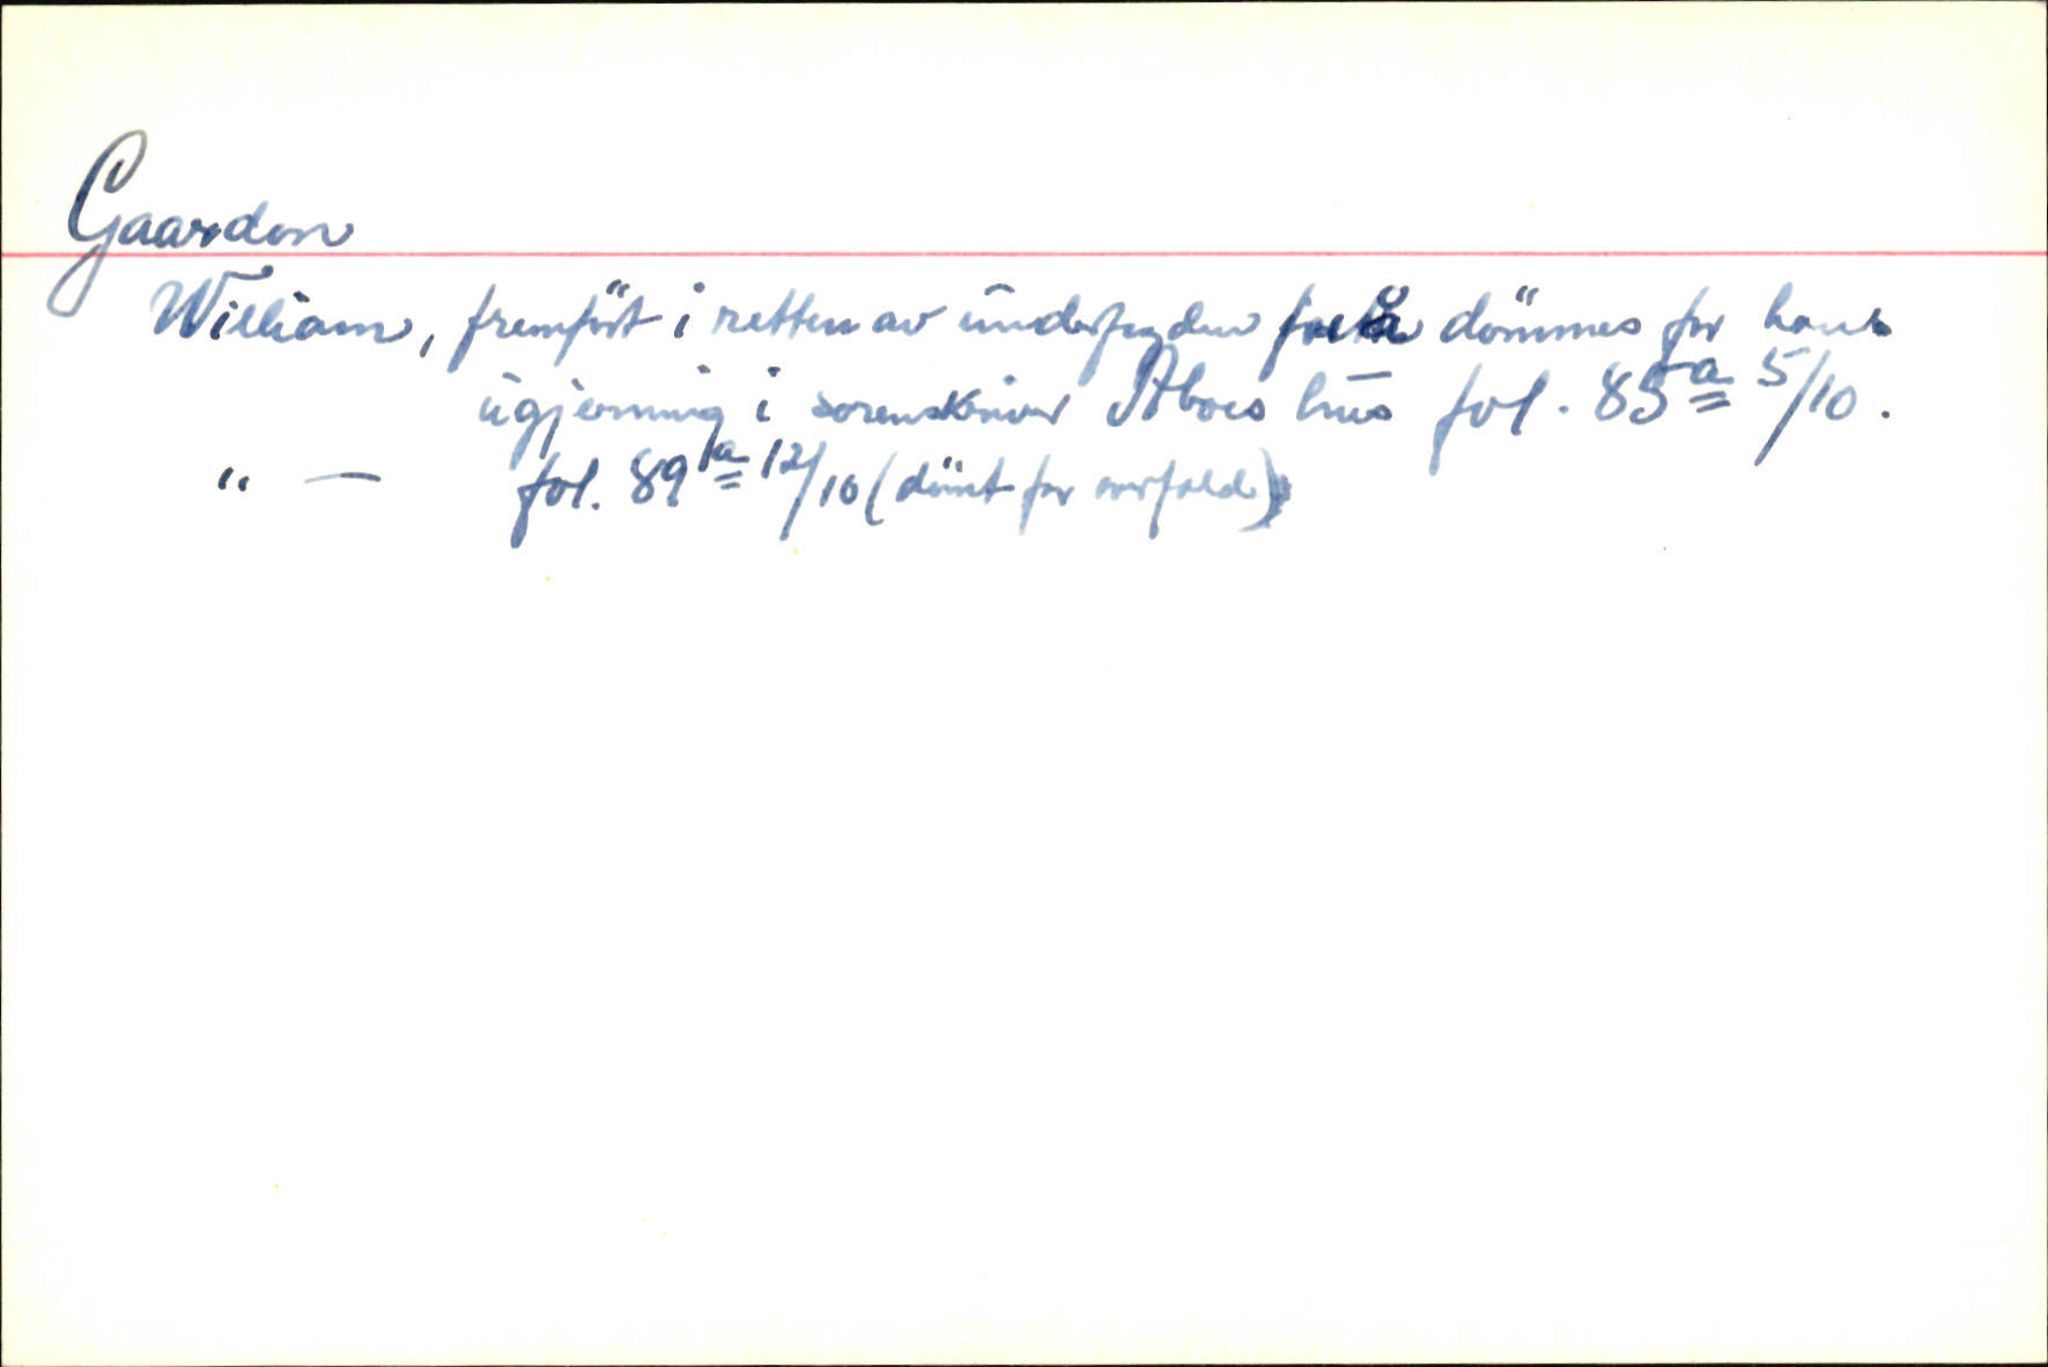 Gaardon
William, fremført i retten av underfogden for å dömmes for hans
ugjerning i sorenskriver Aboes hus fol. 85a 5/10.
" — fol. 89a 12/10 (dömt for overfald)